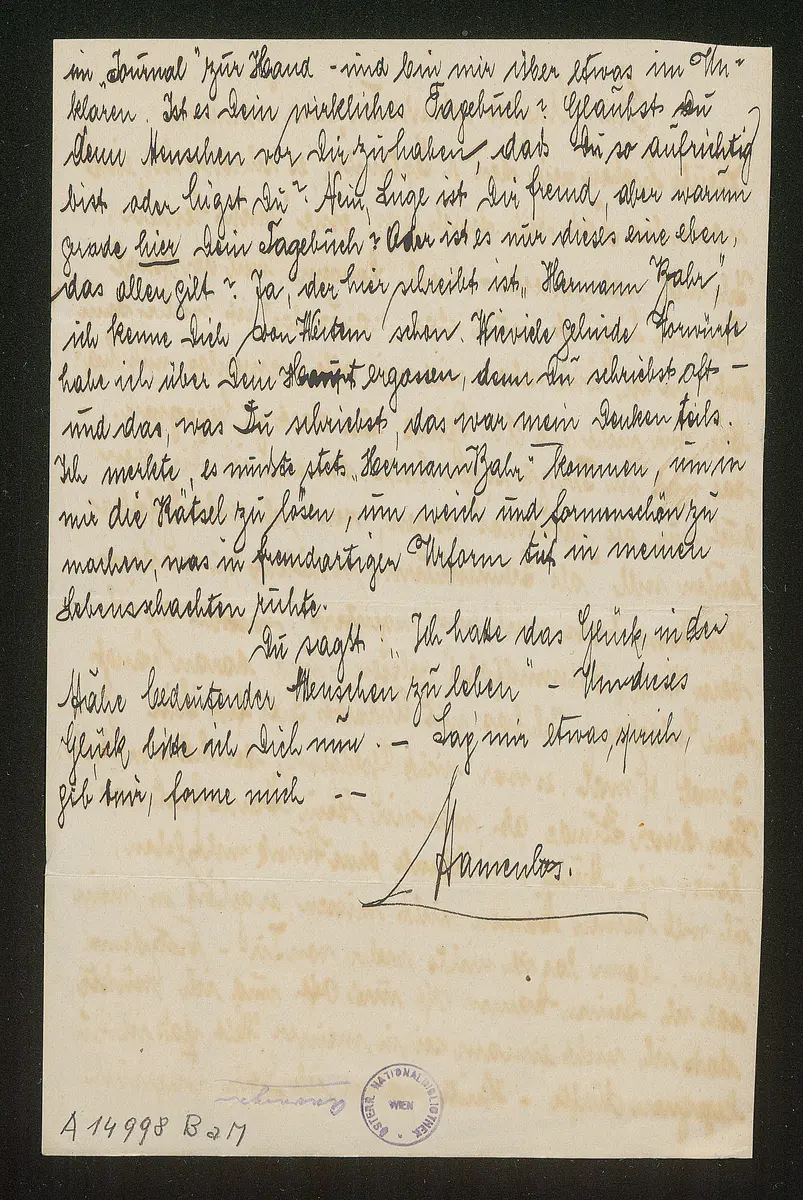 im „Journal" zur Hand – und bin mir über etwas im Un-
klaren. Ist es Dein wirkliches Tagebuch? Glaubst Du
denn Menschen vor Dir zu haben, daß Du so aufrichtig
bist oder lügst Du? Nein, Lüge ist Dir fremd, aber warum
grade hier Dein Tagebuch? Oder ist es nur dieses eine eben,
das allen gilt? Ja, der hier schreibt ist „Hermann Bahr",
ich kenne Dich von Weitem schon. Wieviele gelinde Vorwürfe
habe ich über Dein Haupt ergossen, denn Du schriebst oft –
und das, was Du schriebst, das war mein Denken teils.
Ich merkte, es mußte stets „Hermann Bahr" kommen, um in
mir die Rätsel zu lösen, um weich und formenschön zu
machen, was in fremdartiger Urform tief in meinen
Lebensschachten ruhte.
Du sagst: „Ich hatte das Glück, in der
Nähe bedeutender Menschen zu leben" – Um dieses
Glück bitte ich Dich nun. – Sag' mir etwas, sprich,
gib mir, forme mich – –
Namenlos.
ÖSTERR. NATIONALBIBLIOTHEK
WIEN
A 14998 BaM